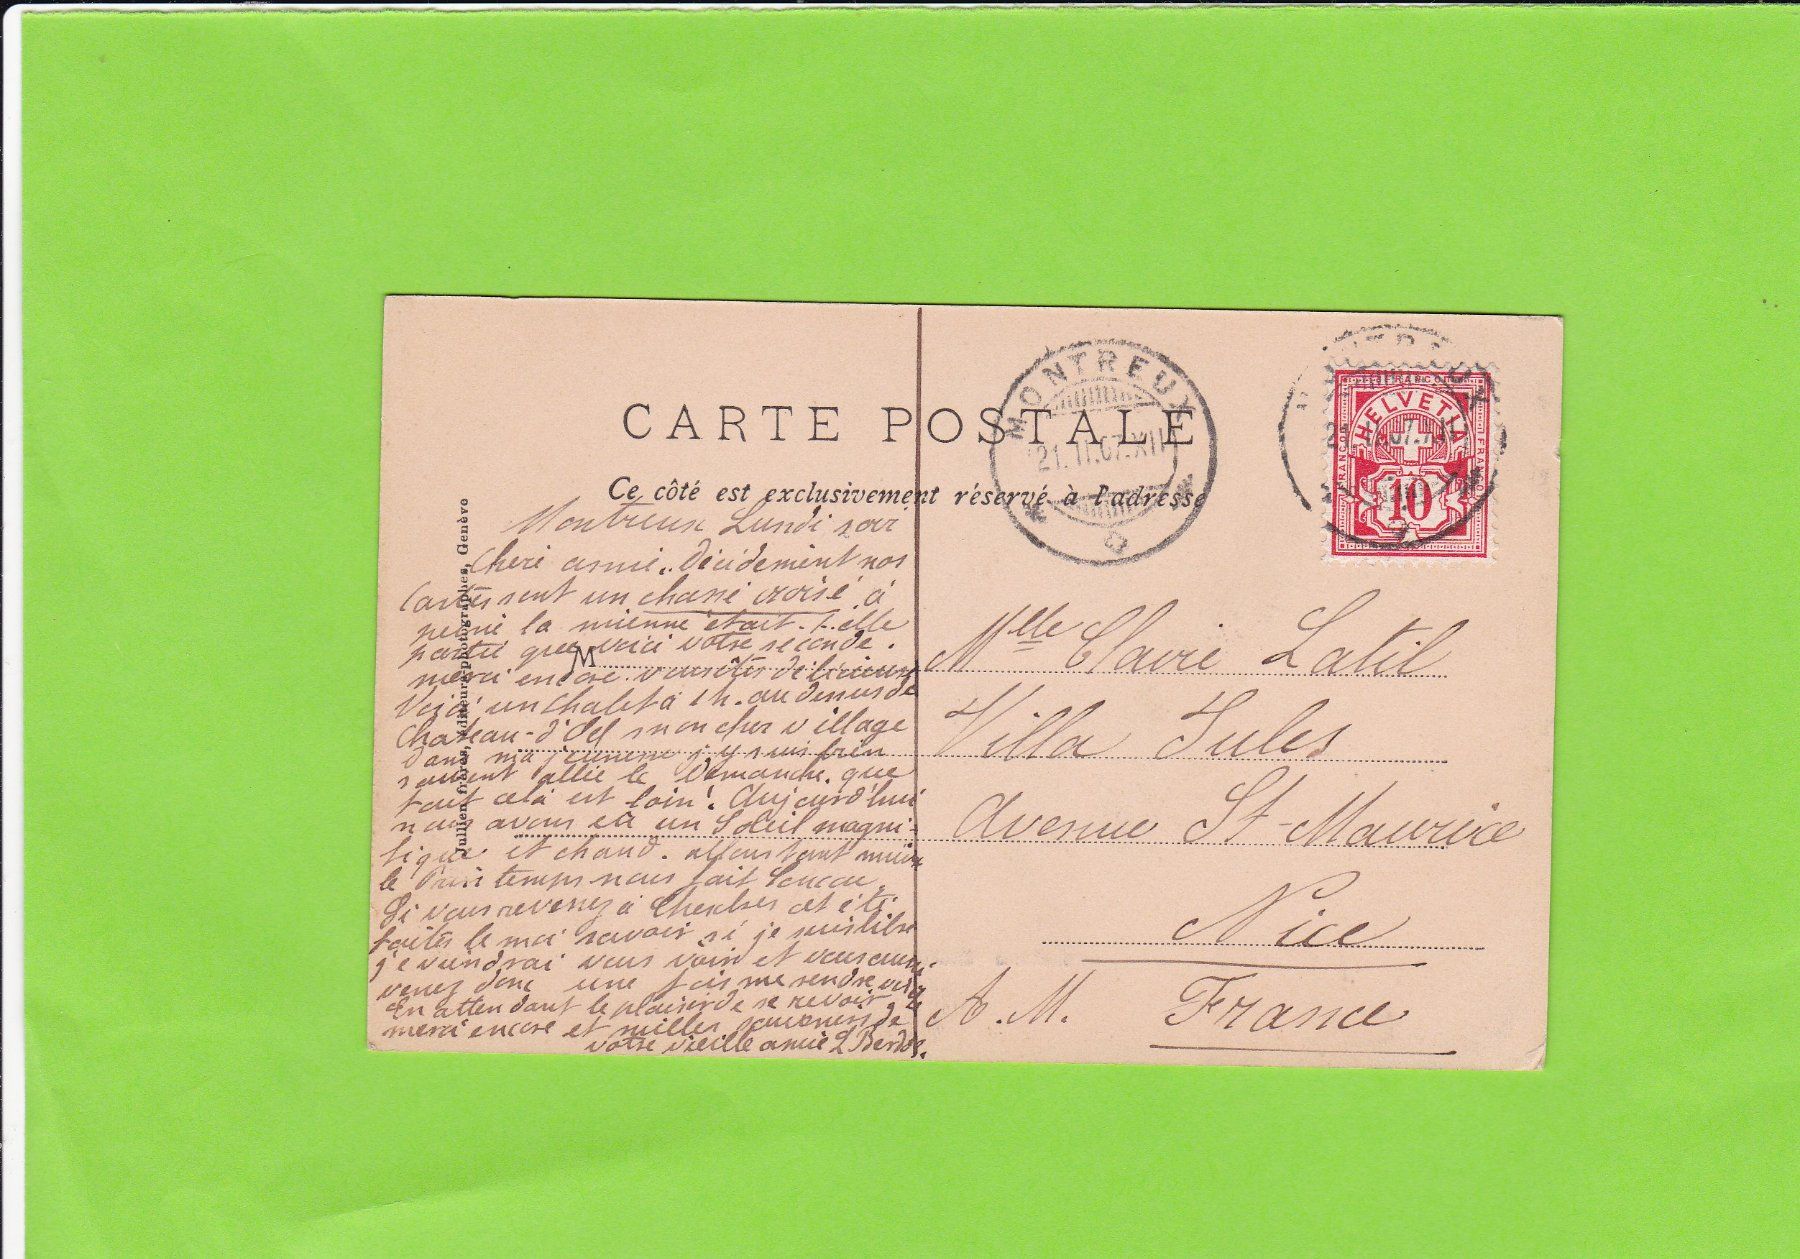 CARTE POSTALE
Ce côté est exclusivement réservé à l'adresse
Jullien frères, éditeurs-photographes, Genève
M
Montreux Lundi soir
Cheri amie. Décidément nos
Cartes sont un chassé croisé à
peine la mienne était-elle
partie que voici votre seconde.
merci encore. vous êtes
Voici un Chalet à 1 h. au dessus de
Chateau-d'Oex mon cher village
Dans ma jeunesse j'y suis
souvent allée le Dimanche. que
tout cela est loin! Aujourd'hui
nous avons eu un Soleil magni-
fique et chaud. allons tant mieux
le Printemps nous fait Coucou.
Si vous revenez à cet été.
faites le moi savoir si je suis libre
je viendrai vous voir et vous aussi
venez donc une fois me rendre visite
En attendant le plaisir de se revoir
merci encore et milles de
votre vieille amie L
MONTREUX
21.II.07.XII
FRANCO
HELVETIA
FRANCO
FRANCO
10
Mlle Claire Latil
Villa Jules
Avenue St-Maurice
Nice
A. M. France